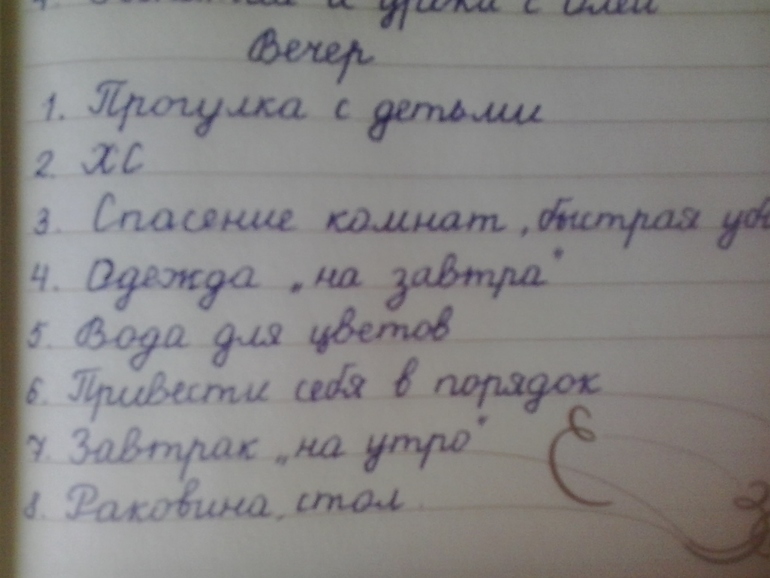 и уроки с
Вечер
1. Прогулка с детьми
2. ХС
3. Спасение комнат, быстрая
4. Одежда „на завтра"
5. Вода для цветов
6. Привести себя в порядок
7. Завтрак „на утро"
8. Раковина, стол